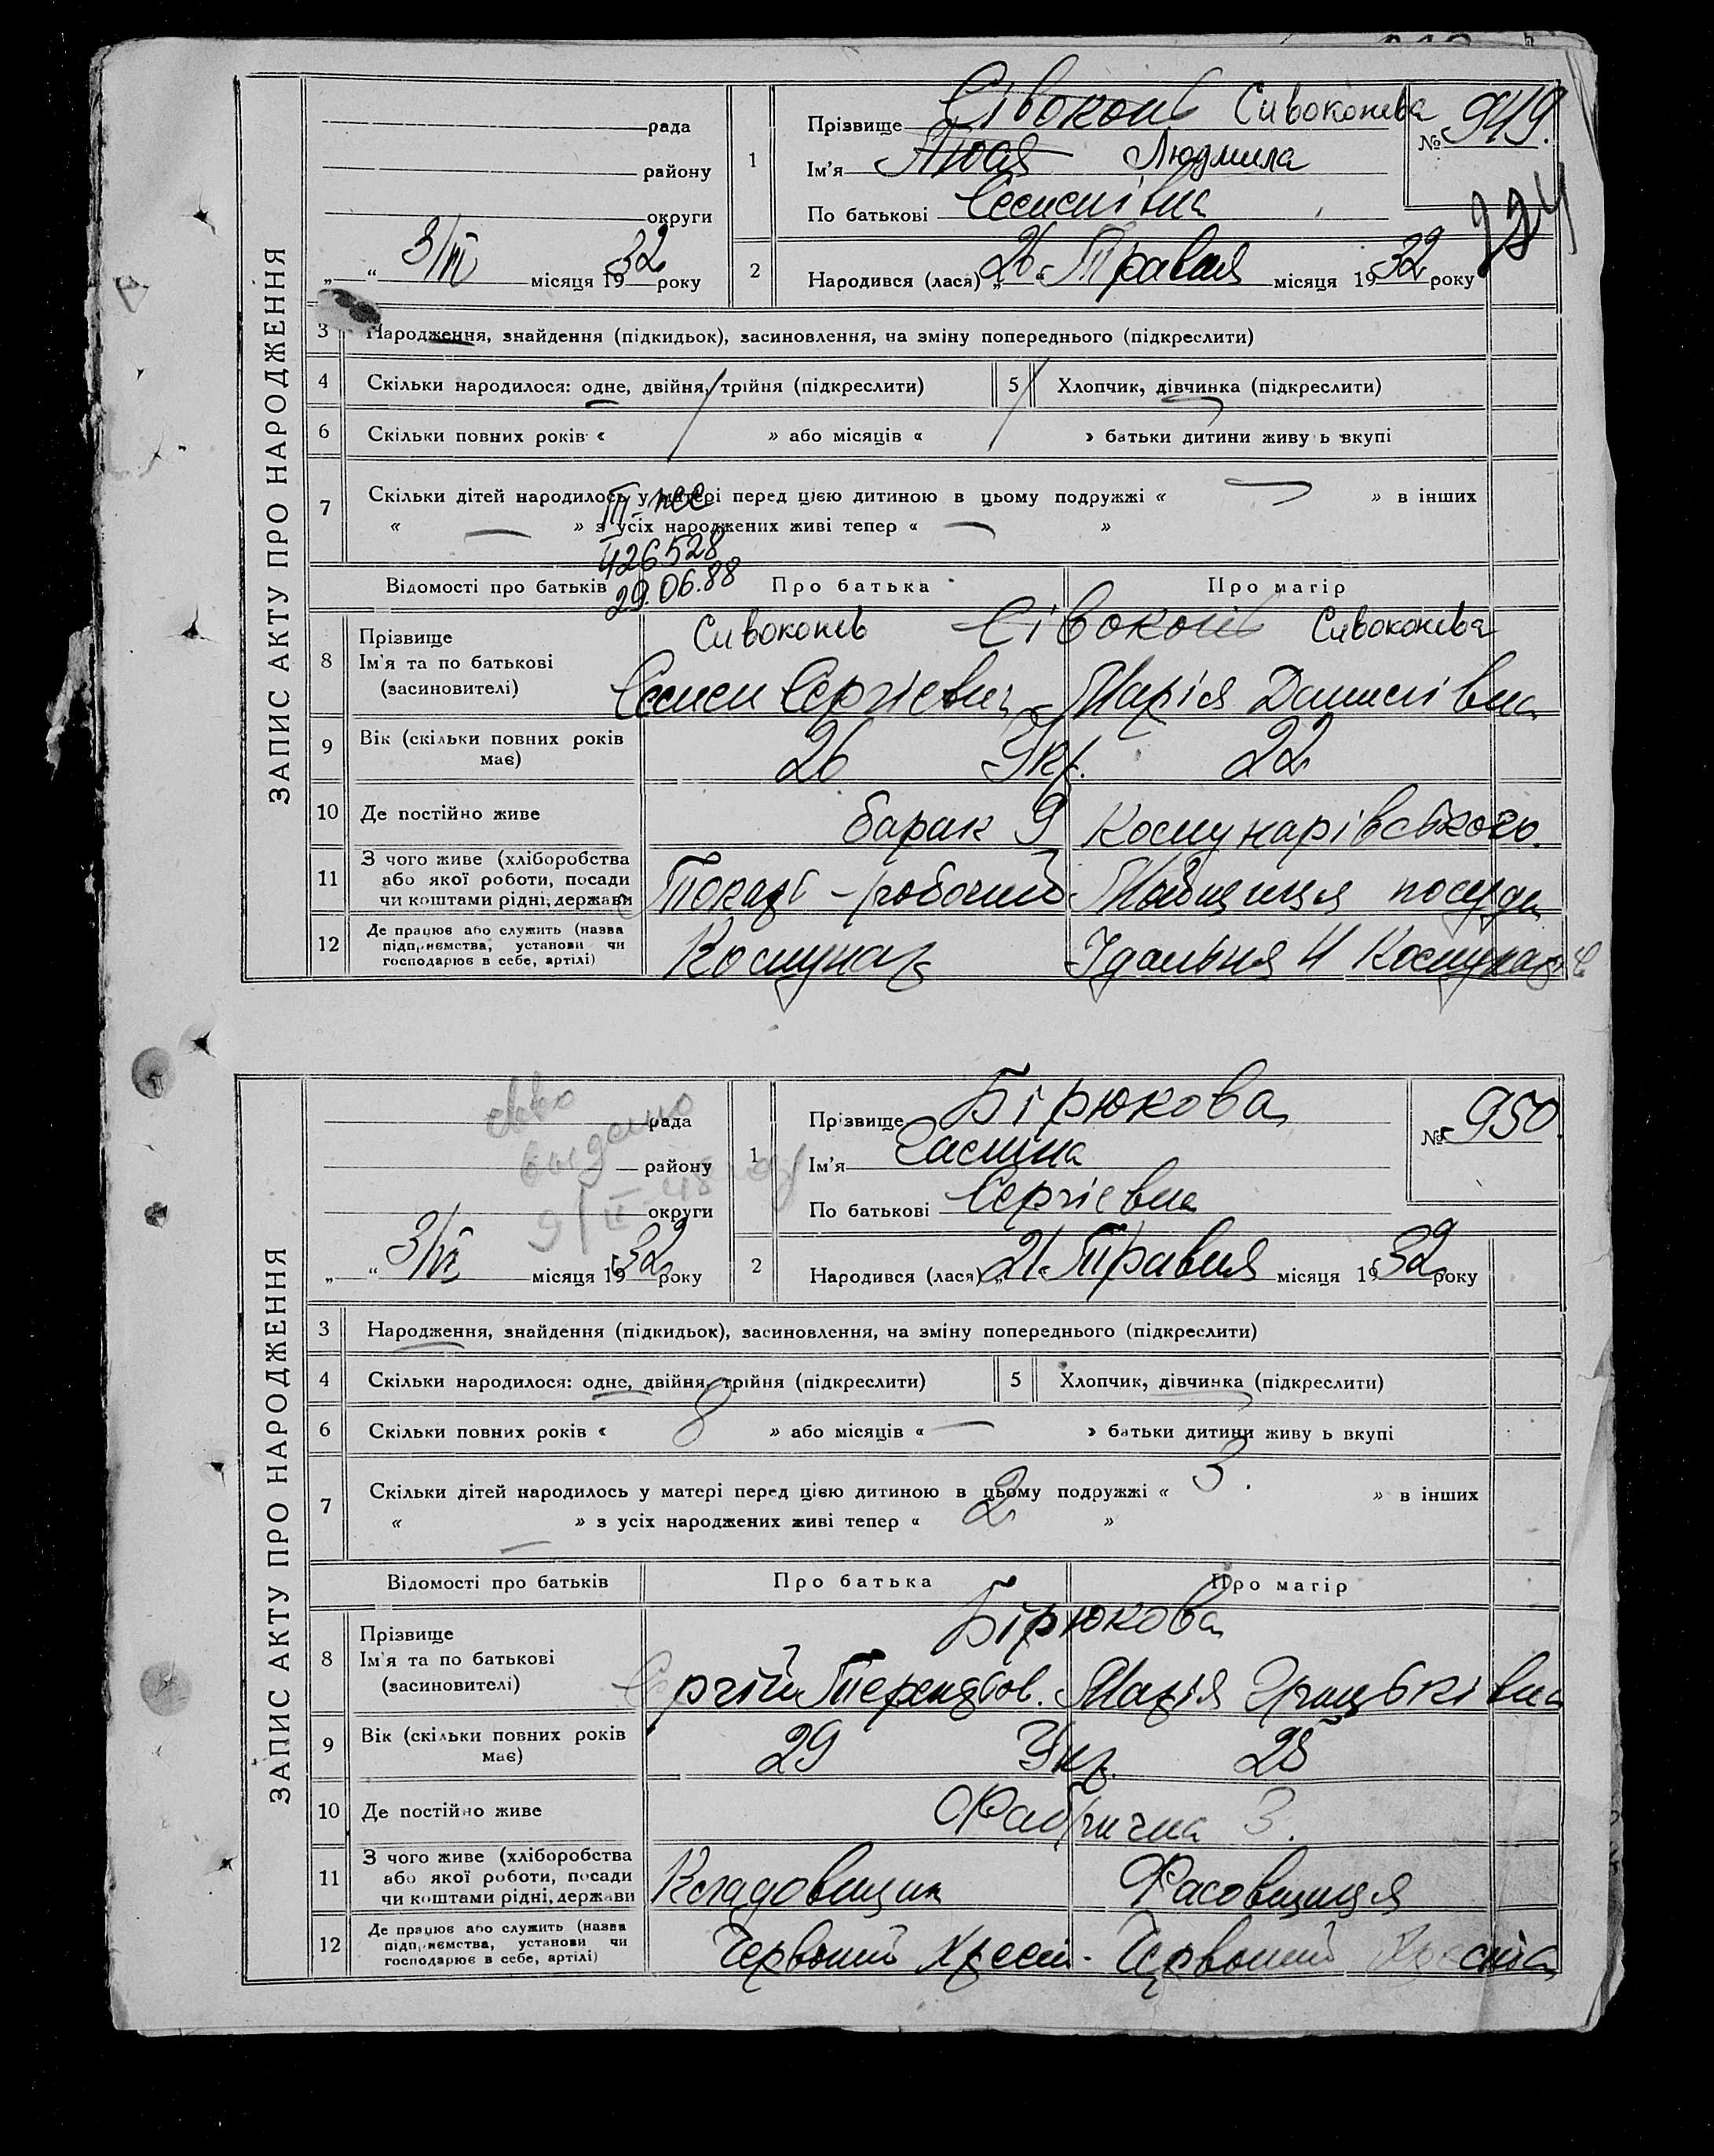 ЗАПИС АКТУ ПРО НАРОДЖЕННЯ
рада
району
округи
„ “ 3/VI місяця 1932 року
1
Прізвище Сівоконь Сивоконева
Ім'я Люся Людмила
По батькові Семенівна
№ 949.
2
Народився (лася) „26“ Травня місяця 1932 року
3 Народження, знайдення (підкидьок), засиновлення, на зміну попереднього (підкреслити)
4 Скільки народилося: одне, двійня, трійня (підкреслити) 5 Хлопчик, дівчинка (підкреслити)
6 Скільки повних років « » або місяців « » батьки дитини живу ь вкупі
7 Скільки дітей народилось у матері перед цією дитиною в цьому подружжі « — » в інших
« — » з усіх народжених живі тепер « — »
426528
29.06.88
Відомості про батьків Про батька Про матір
8 Прізвище Сивоконев Сівоконь Сивоконева
Ім'я та по батькові
(засиновителі) Семен Сергієвич Марія Данилівна
9 Вік (скільки повних років має) 26 Укр. 22
10 Де постійно живе барак 9 Комунарівського.
11 З чого живе (хліборобства
або якої роботи, посади
чи коштами рідні, держави Токарь - робочий Мийщиця посуди
12 Де працює або служить (назва
підприємства, установи чи
господарює в себе, артілі) Комунар Їдальня 4 Комунар
ЗАПИС АКТУ ПРО НАРОДЖЕННЯ
рада
выдано
району
округи
„ “ 3/VI місяця 1932 року
1
Прізвище Бірюкова
Ім'я Галина
По батькові Сергієвна
№ 950.
2
Народився (лася) „21“ Травня місяця 1932 року
3 Народження, знайдення (підкидьок), засиновлення, на зміну попереднього (підкреслити)
4 Скільки народилося: одне, двійня, трійня (підкреслити) 5 Хлопчик, дівчинка (підкреслити)
6 Скільки повних років « 8 » або місяців « — » батьки дитини живу ь вкупі
7 Скільки дітей народилось у матері перед цією дитиною в цьому подружжі « 3. » в інших
« — » з усіх народжених живі тепер « 2 »
Відомості про батьків Про батька Про матір
8 Прізвище Бірюкова
Ім'я та по батькові
(засиновителі) Сергій Терентьов. Марія Грицьківна
9 Вік (скільки повних років має) 29 Укр. 25
10 Де постійно живе Фабрична 3.
11 З чого живе (хліборобства
або якої роботи, посади
чи коштами рідні, держави Кладовщик Фасовщиця
12 Де працює або служить (назва
підприємства, установи чи
господарює в себе, артілі) Червоний Хрест - Червоний Хреста